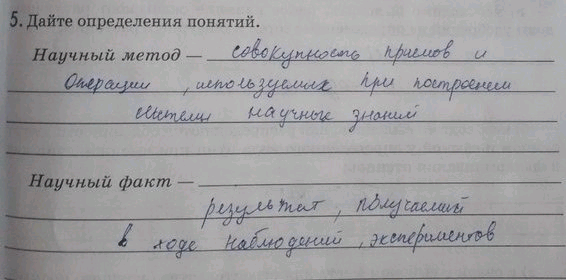 5. Дайте определения понятий.
Научный метод — совокупность приемов и
операции, используемых при построении
системы научных знаний
Научный факт —
результат, получаемый
в ходе наблюдений, экспериментов